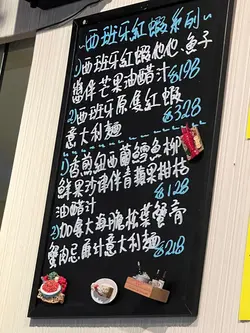 西班牙紅蝦系列
1)西班牙紅蝦他他魚子
醬伴芒果油醋汁$198
2)西班牙原隻紅蝦
意大利麵 $328
1)香煎紐西蘭鱈魚柳
鮮果沙律伴青蘋果柑桔
油醋汁 $128
2)加拿大海膽松葉蟹膏
蟹肉忌廉汁意大利麵
$218